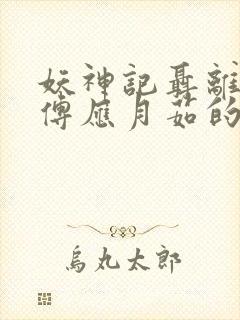 妖神記聶離
傅應月茹的
烏丸太郎